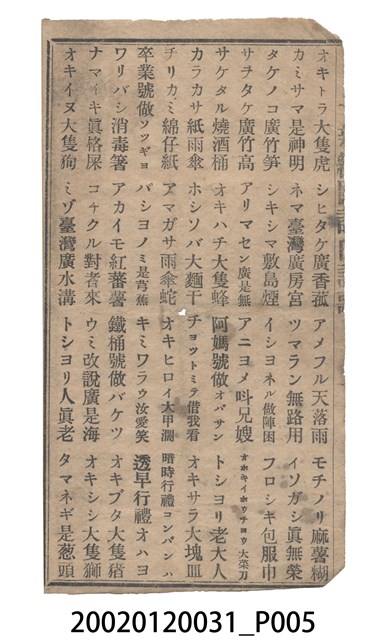 オキトラ大隻虎 シヒタケ廣香菰 アメフル天落雨 モチノリ麻薯糊
カミサマ是神明 ネマ臺灣廣房宮 ツマラン無路用 イソガシ眞無榮
タケノコ廣竹笋 シキシマ敷島煙 イシヨネル做陣困 フロシキ包服巾
サヲタケ廣竹高 アリマセン廣是無 アニヨメ呌兄嫂 オホキイホウチヨウ大菜刀
サケタル燒酒桶 オキハチ大隻蜂 阿媽號做オバサン トシヨリ老大人
カラカサ紙雨傘 ホシソバ大麵干 チヨツトミテ借我看 オキサラ大塊皿
チリカミ綿仔紙 アマガサ雨傘蛇 オキヒロイ大甲濶 暗時行禮コンバンハ
卒業號做ソツギヨ バシヨノミ是芎蕉 キミワラウ汝愛笑 透早行禮オハヨ
ワリバシ消毒箸 アカイモ紅蕃薯 鐵桶號做バケツ オキブタ大隻猪
ナマイキ眞格屎 コヤクル對者來 ウミ改說廣是海 オキシシ大隻獅
オキイヌ大隻狗 ミゾ臺灣廣水溝 トシヨリ人眞老 タマネギ是葱頭
20020120031_P005